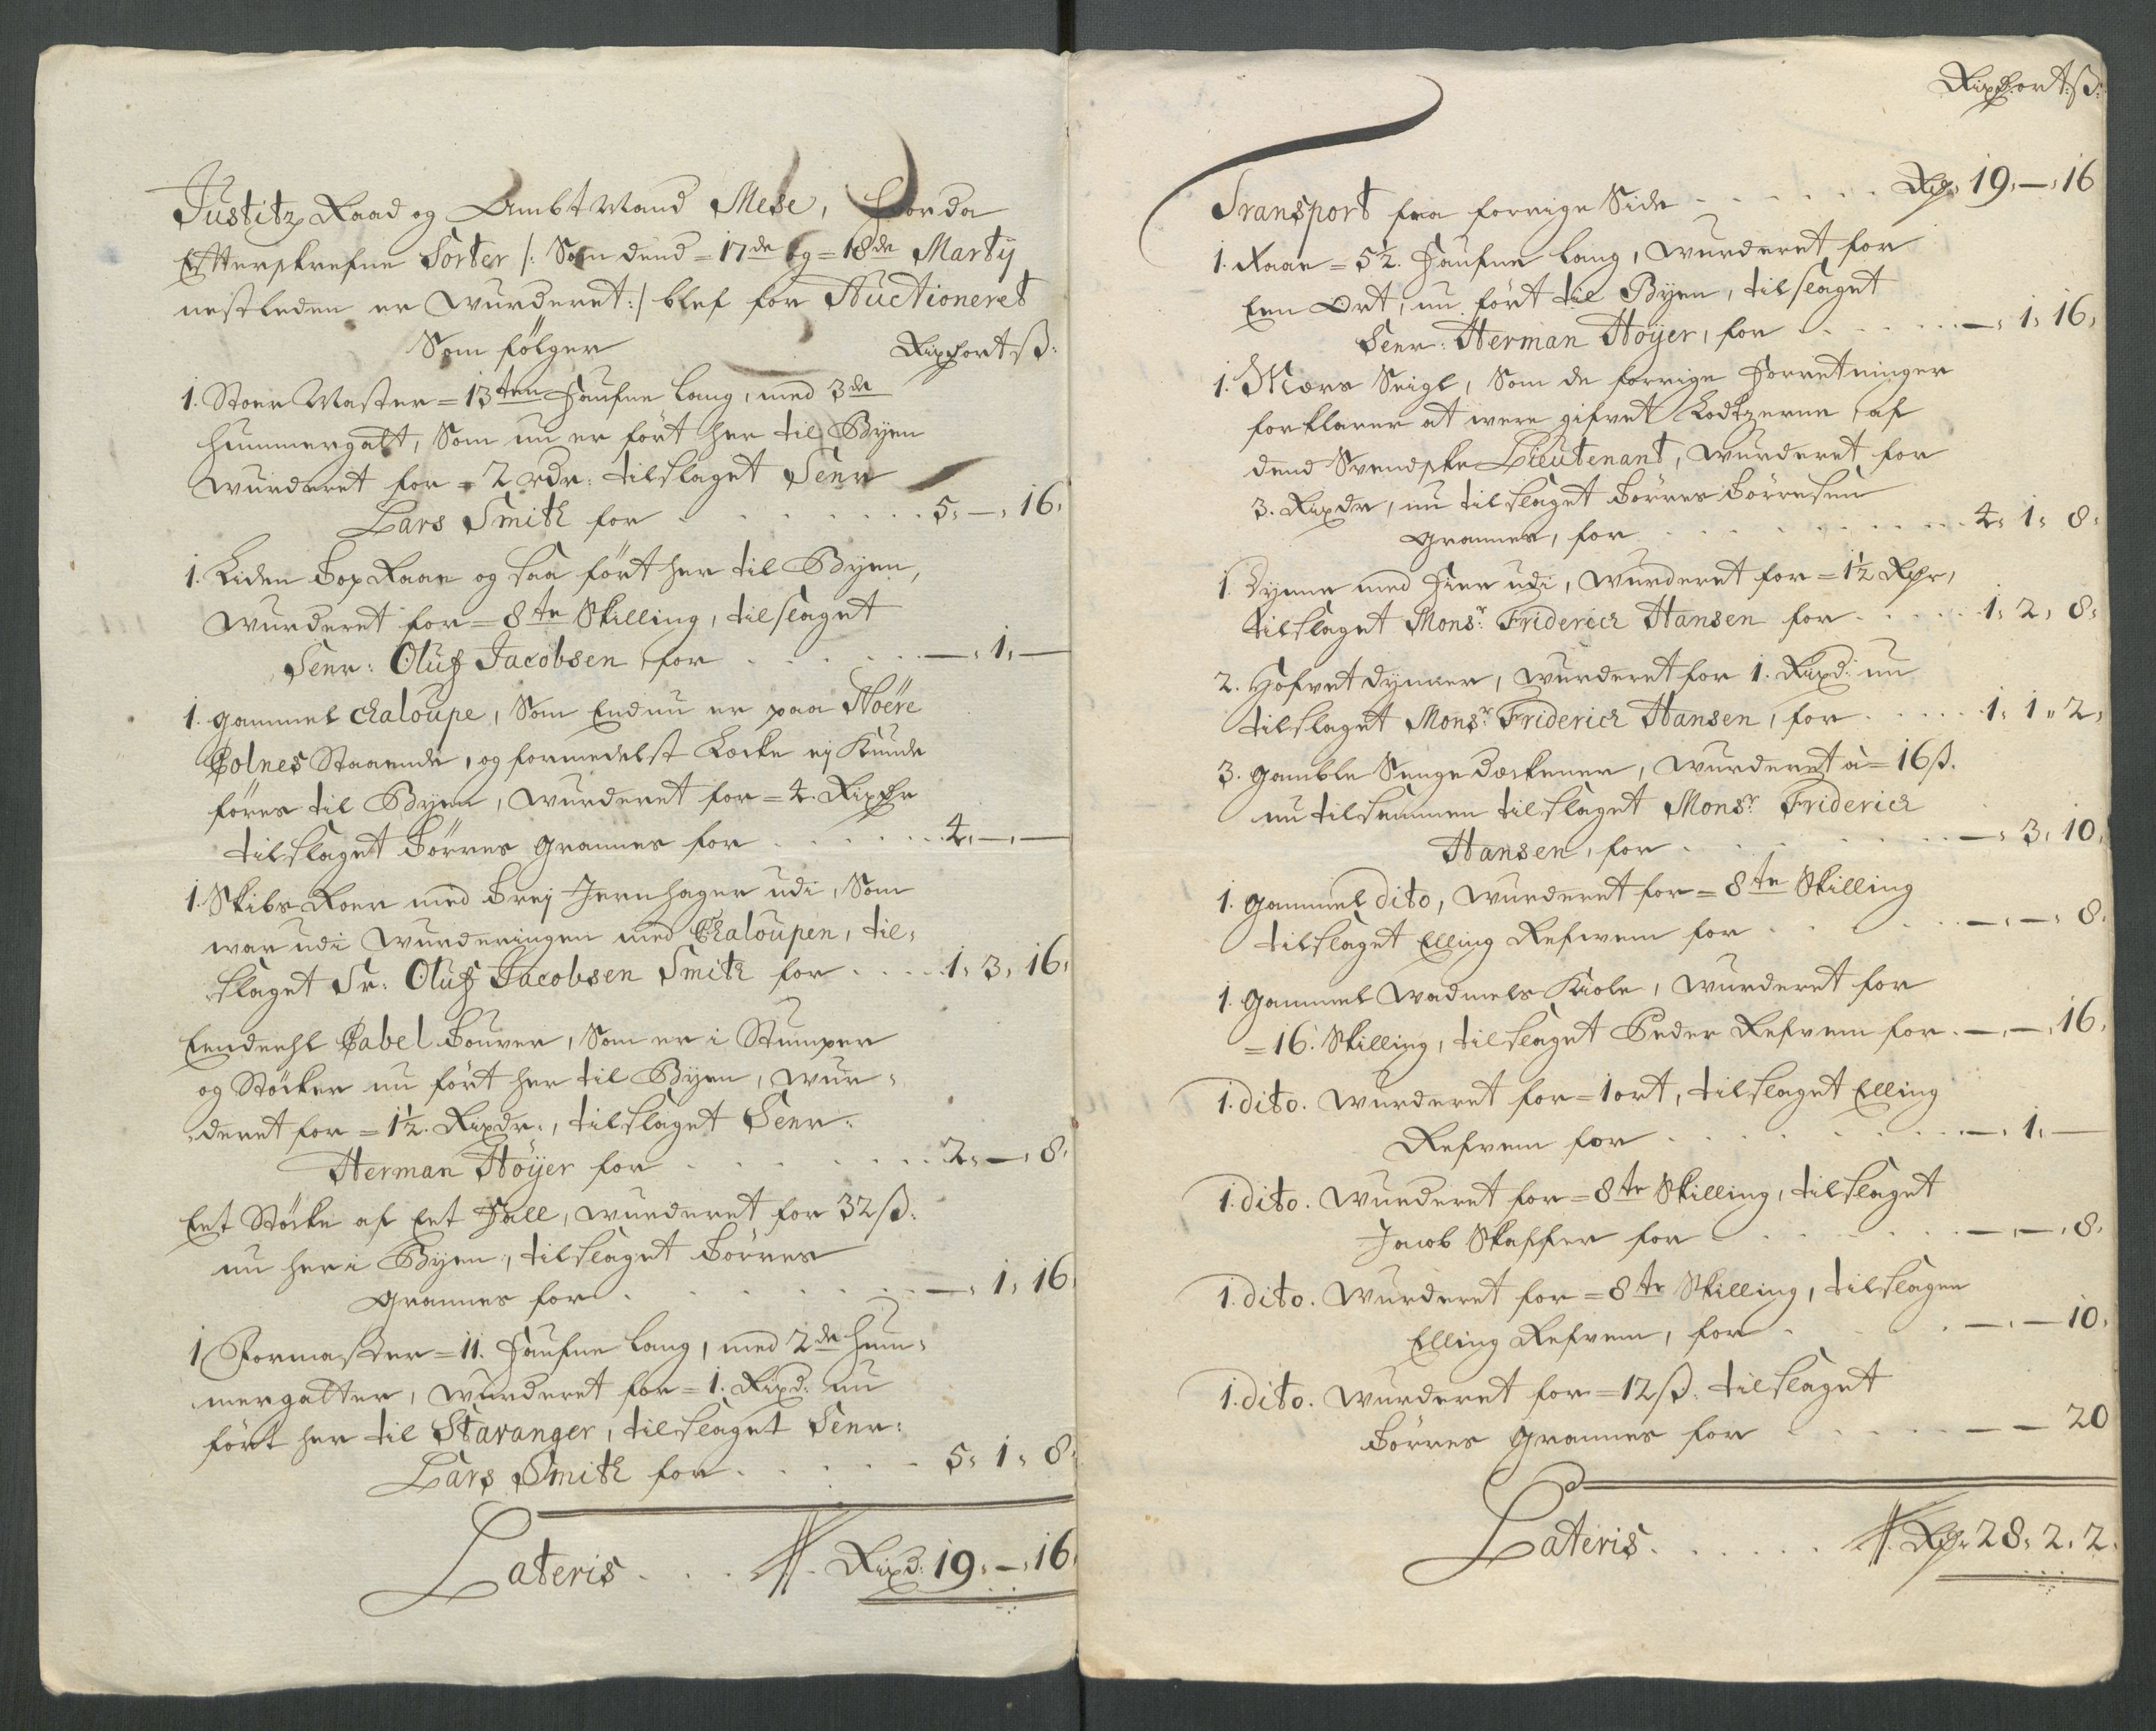 Justitz Raad og Ambtmand Mese, hvor da
Efterskrefne Sorter /: Som dend = 17de og = 18de Martij
nestleden er wurderet :/ blef for Auctioneret
Som fölger Rixdr ort ß:
1. Stoer Master = 13ten Faufne lang, med 3de
hummergatt, Som nu er fört her til Byen
wurderet for = 2 rdr: tilslaget Senr
Lars Smith for . . . . . . 5. —. 16.
1. Liden Bop Raae og saa fört her til Byen,
wurderet for = 8te Skilling, tilslaget
Senr: Oluf Jacobsen for . . . . . —. 1. —
1. gammel Chaloupe, Som Endnu er paa Höere
Polnes Staaende, og formedelst Lecke ej Kunde
föres til Byen, wurderet for = 4. Rixdr
tilslaget Börres Grannes for . . . . . 4. —. —
1. Skibs Roer med Trej Jernhager udi, Som
war udi wurderingen med Chaloupen, til,
slaget Sr: Oluf Jacobsen Smith for . . . . 1. 3. 16.
Eendeehl Cabel Touver, Som er i Stumper
og Stöcker nu fört her til Byen, wur,
deret for = 1½. Rixdr:, tilslaget Senr:
Herman Höyer for . . . . . . 2. —. 8.
Eet Stöcke af Eet Fall, wurderet for 32 ß:
nu her i Byen, tilslaget Börres
Grannes for . . . . . . —. 1. 16.
1 Formaster = 11. Faufne lang, med 2de hum,
mergatter, wurderet for = 1. Rixd: nu
fört her til Stavanger, tilslaget Senr:
Lars Smith for . . . . . 5. 1. 8.
Lateris . . . Rixd: 19. —. 16.
Rixdr ort: ß:
Transport fra forrige Side . . . . . . Rdr. 19. —. 16
1. Raae = 5½. Faufne lang, wurderet for
Een Ort, nu fört til Byen, tilslaget
Senr: Herman Höyer, for . . . . . —. 1. 16.
1. Mers Seigl, Som de forrige Forretninger
forklarer at were gifvet Lodtzerne, af
dend Svendske Lieutenant, wurderet for
3. Rixdr, nu tilslaget Börres Börresen
Grannes, for . . . . . . . 4. 1. 8.
1. Dynne med Fier udi, wurderet for = 1½ Rdr,
tilslaget Monsr: Friderich Hansen for . . . . 1. 2. 8.
2. Hofvet dynner, wurderet for 1. Rixd: nu
tilslaget Monsr: Friderich Hansen, for . . . . 1. 1. 2.
3. gamble Senge deckener, wurderet à = 16 ß.
nu tilsammen tilslaget Monsr Friderich
Hansen, for . . . . . . —. 3. 10.
1. gammel dito, wurderet for = 8te Skilling
tilslaget Elling Refvem for . . . . . —. —. 8.
1. gammel wadmels Kiole, wurderet for
= 16. Skilling, tilslaget Peder Refvem for . —. —. 16.
1. dito. wurderet for = 1 ort, tilslaget Elling
Refvem for . . . . . . . —. 1. —
1. dito. wurderet for = 8te Skilling, tilslaget
Jacob Skaffer for . . . . . . —. —. 8.
1. dito. wurderet for = 8te Skilling, tilslagen
Elling Refvem, for . . . . . —. — 10.
1. dito. wurderet for = 12 ß. tilslaget
Börres Grannes for . . . . . . — — 20
Lateris . . . . . . Rdr 28. 2. 2.